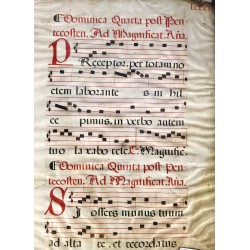 Dominica Quarta post Pen
tecosten. Ad Magnificat. Aña.
PReceptor. per totam no
ctem laborante s nihil
cepimus. in verbo autem
tuo laxabo rete. Magnific.
Dominica Quinta post Pen
tecosten. Ad Magnificat. Aña.
SI offers munus tuum
ad alta re. et recordatus